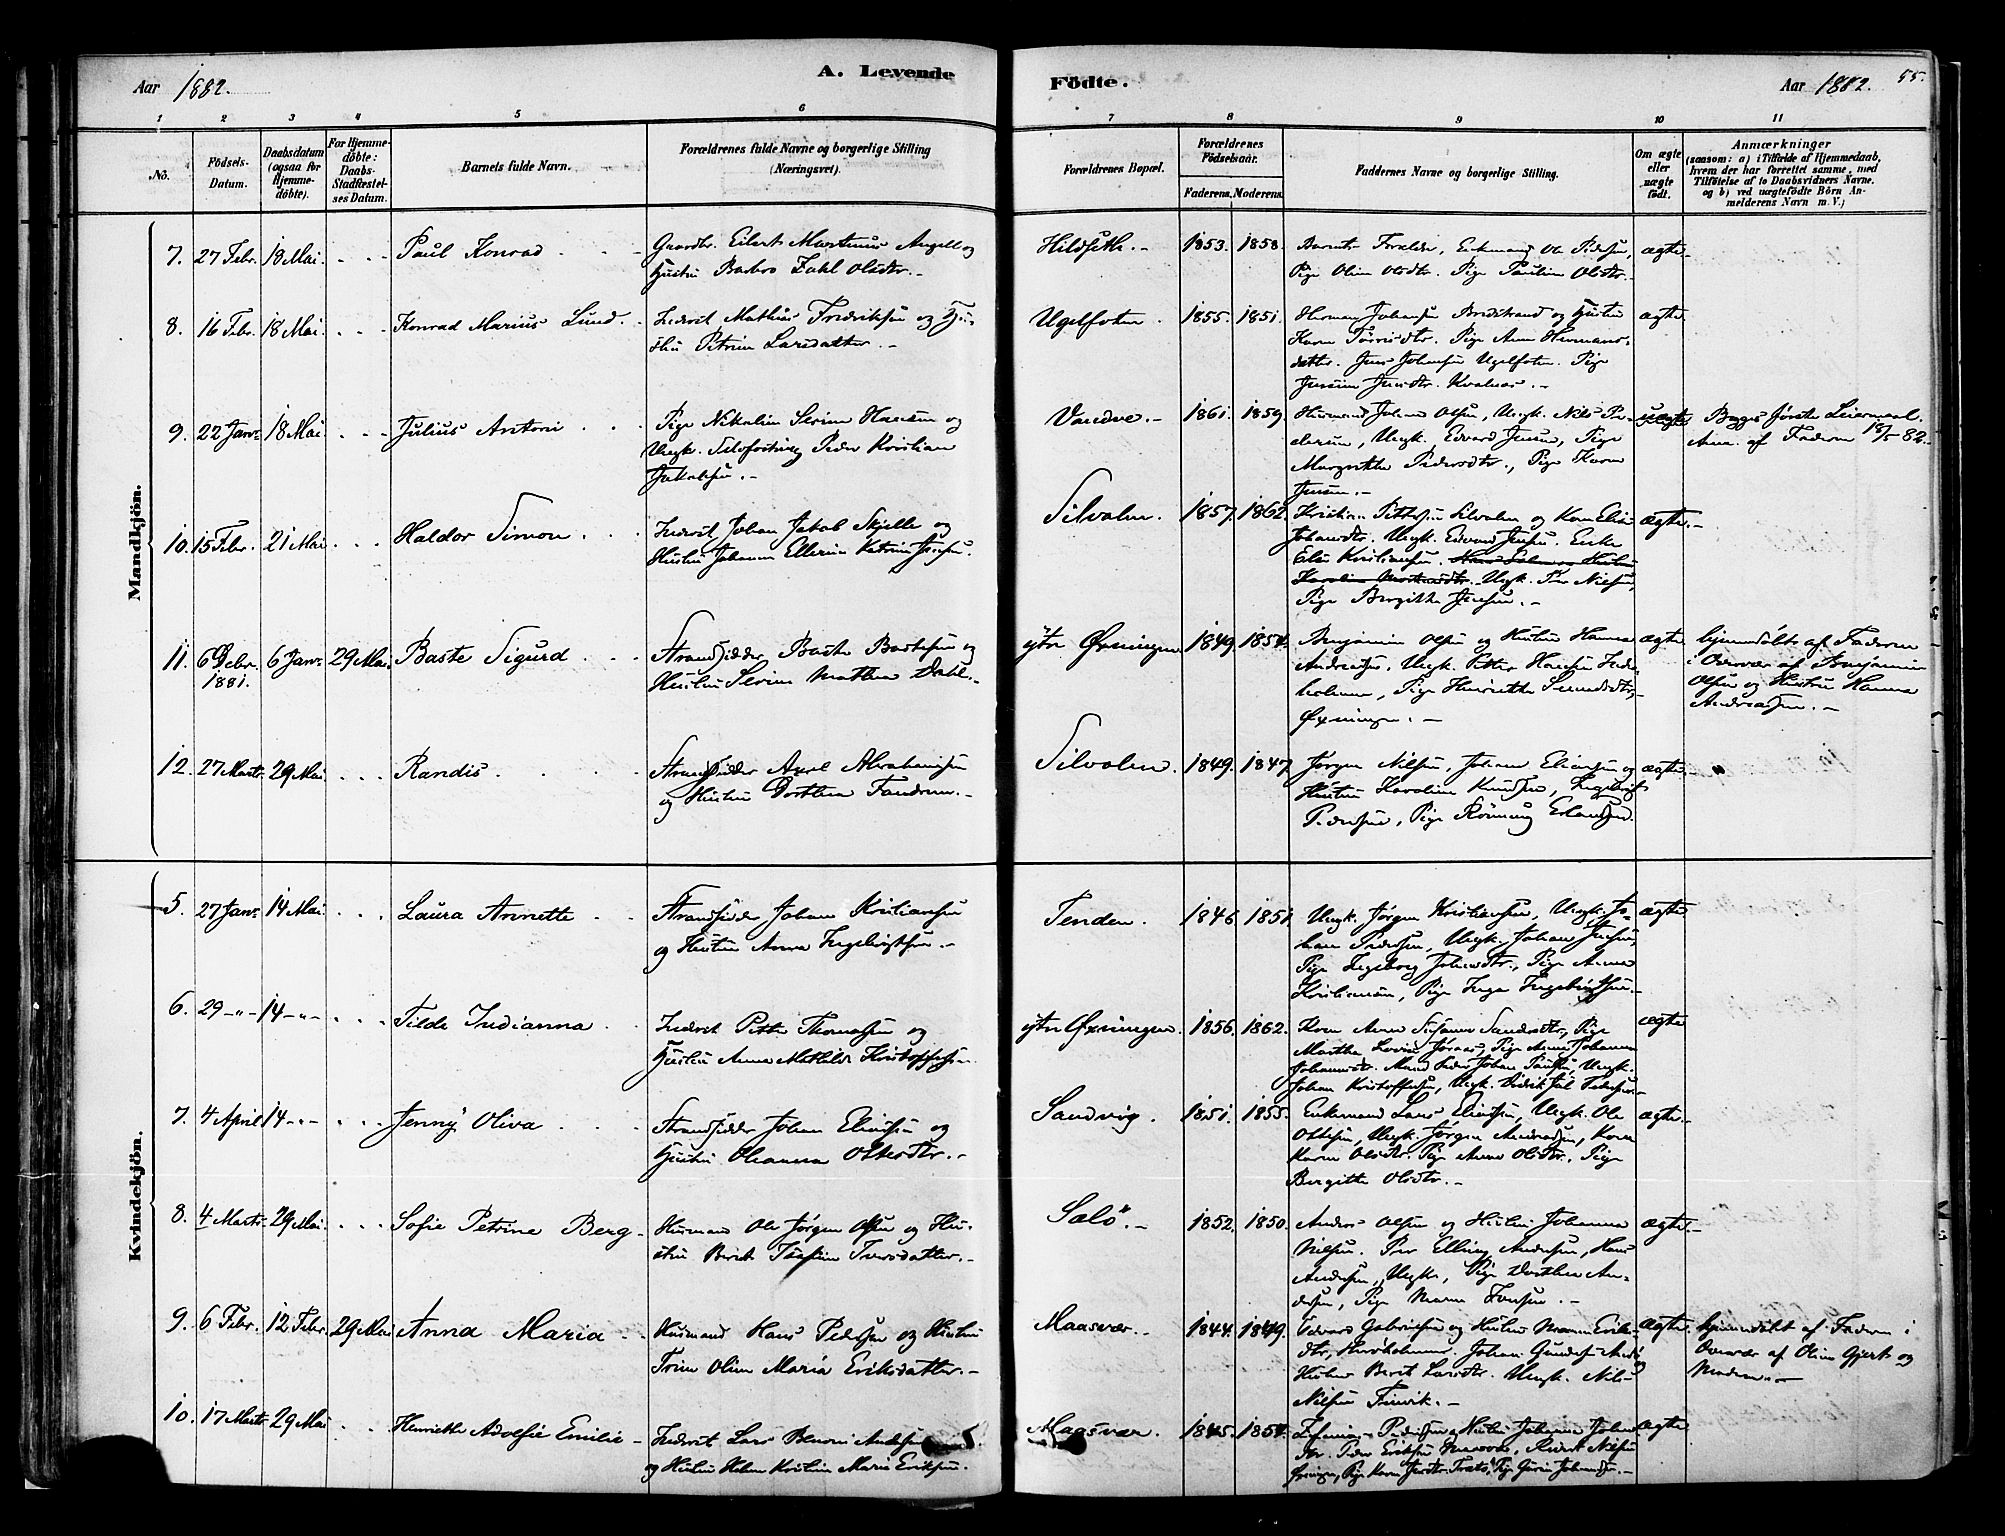 Aar 1882.
A. Levende
Födte.
Aar 1882.
55.
1 2 3 4 5 6 7 8 9 10 11
No.
Födsels-Datum.
Daabsdatum (ogsaa for Hjemmedöbte).
For Hjemmedöbte: Daabs-Stadfæstelses Datum.
Barnets fulde Navn.
Forældrenes fulde Navne og borgerlige Stilling (Næringsvei).
Forældrenes Bopæl.
Forældrenes Födselsaar.
Faderens. Moderens.
Faddernes Navne og borgerlige Stilling.
Om ægte eller uægte födt.
Anmærkninger
(saasom: a) i Tilfælde af Hjemmedaab, hvem der har forrettet samme, med Tilföielse af to Daabsvidners Navne, og b) ved uægtefödte Börn Anmelderens Navn m. V.)
Mandkjön.
7. 27 Febr. 18 Mai. Paul Konrad
Gaardbr. Eilert Martinus Angell og
Hustru Barbro Zahl Olsdtr.
Hildseth. 1853. 1858.
Pige Oline Olsdtr. Pige Pauline Olsdtr.
ægte
8. 16 Febr. 18 Mai. Konrad Marius Lund.
Inderst Mathias Fredriksen og Hustru Petrine Larsdatter.
Ugelfoten. 1855. 1851.
Herman Johansen Bredstrand og Hustru
Karen Tørrisdtr. Pige Anne Hermansdatter. Jens Johansen Ugelfoten. Pige
Kvalnæs.
ægte
9. 22 Janr. 18 Mai. Julius Antoni
Pige Nikoline Serine Hansen og
Ungk. Peder Kristian
Jakobsen.
Vandve. 1861. 1859.
Husmand Johan Olsen, Ungk. Nils Pedersen, Ungk. Edvard Jensen, Pige
Margrethe Pedersdtr., Pige Karen
Jensen.
uægte
Begges første Leiermaal.
Anm. af Faderen 18/5 82.
10. 15 Febr. 21 Mai Haldor Simon
Inderst Johan Jakob Skjelle og
Hustru Johanna Ellerine Katrine Josefsen.
Silvalen. 1857. 1862.
Kristian Pettersen Silvalen og Kone Elisa
Johansdtr. Ungk. Edvard Jensen. Enke
Elen Kristiansen.
Karoline Mortensdtr. Ungk. Per Nilsen,
Pige Bergitte Jensen.
ægte.
11. 6 Decbr. 1881. 6 Janr. 29 Mai Baste Sigurd
Strandsidder Baste Bastesen og
Hustru Serine Mathea Dahl.
ytre Øxningen 1849. 1854.
Benjamin Olsen og Hustru Hanna
Andreassen, Ungk. Petter Hansen
Pige Henriette
Øxningen.
ægte
hjemmedøbt af Faderen
i Osvær af Benjamin
Olsen og Hustru Hanna
Andreassen.
12. 27 Marts. 29 Mai Randis
Strandsidder Axel Abrahamsen
og Hustru Dorthea
Silvalen. 1849. 1847.
Jørgen Nilsen, Johan Eliassen og
Hustru Karoline Knudsen, Ingeborg
Pedersen, Pige Rønnaug Erlandsen.
ægte.
Kvindekjön.
5. 27 Janr. 14 Mai. Laura Annette
Strandsidder Johan Kristiansen
og Hustru Anna Ingebrigtsen.
Tenden. 1846. 1851.
Ungk. Jørgen Kristiansen, Ungk. Johan Pedersen, Ungk. Johan Jensen,
Pige Ingeborg Johansdtr., Pige Anna
Kristiansen, Pige Inga Ingebrigtsen.
ægte
6. 29 -"- 14 -"- Tilde Indianna
Inderst Petter Thomassen og
Hustru Anna Mathilde Kristoffersen.
ytre Øxningen. 1856. 1862.
Kone Anna Susanna Sandersdtr., Pige
Martha Lovise Jøraas, Pige Anna Johanna
Johannesdtr. Mand Peder Johan Paulsen, Ungk.
Johan Kristoffersen, Ungk.
ægte
7. 4 April 14 -"- Jenny Oliva
Strandsidder Johan Eliassen og
Hustru Oleanna Olsdtr.
Sandvig. 1851. 1855.
Enkemand Lars Eliassen, Ungk. Ole
Ottesen, Ungk. Jørgen Andreassen, Kone
Karen Olsdtr. Pige Anne Olsdtr. Pige
Bergitte Olsdtr.
ægte.
8. 4 Marts. 29 Mai. Sofie Petrine Berg
Husmand Ole Jørgen Olsen og Hustru Berit Iversdatter.
Sølö. 1852. 1850.
Anders Olsen og Hustru Johanna
Nilsen. Per Elling Andersen, Hans
Andersen, Ungk., Pige Dorthea Andersen, Pige Maren
ægte.
9. 6 Febr. 12 Febr. 29 Mai Anna Maria
Husmand Hans Pedersen og Hustru
Trine Oline Maria Eriksdatter.
Maasvær. 1844. 1849.
Edvard Gabrielsen og Hustru Maren Eriksdtr.
Hustru Berit Larsdtr. Ungk. Nils
Nilsen
ægte.
hjemmedøbt af Faderen i
Osvær af Oline Gjert og
Moderen.
10. 17 Marts 29 Mai Henriette Adolfie Emilie
Inderst Lars Andersen
og Hustru Helen Kristine Marie Eriksen.
Maasvær. 1845. 1854.
Pedersen og Hustru Johanna
Peder Eriksen Maasvær,
ægte